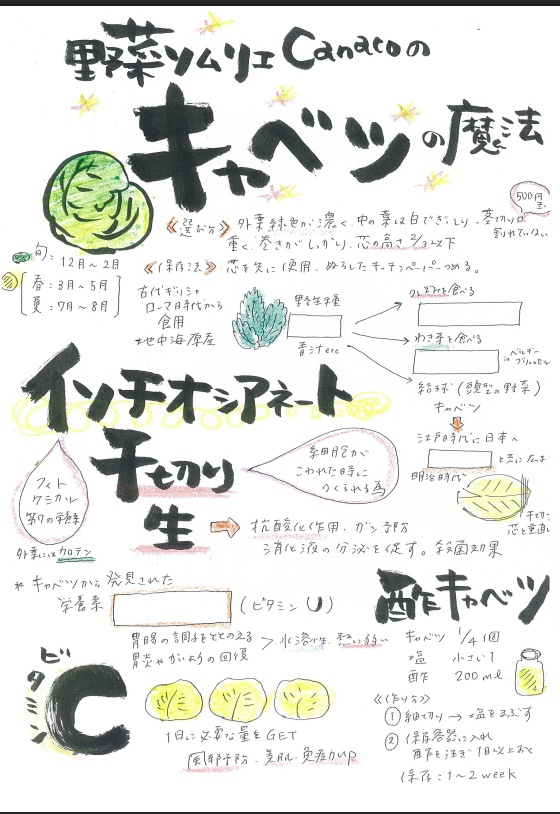 野菜ソムリエ Canacoの
キャベツの魔法
500円玉
《選び方》外葉緑色が濃く、中の葉は白でぎっしり、茎切り口
割れていない
重く、巻きがしっかり、芯の高さ 2/3以下
旬：12月〜2月
春：3月〜5月
夏：7月〜8月
《保存法》芯を先に使用、ぬらしたキッチンペーパーつめる。
古代ギリシャ
ローマ時代から
食用
地中海原産
野生種
青汁etc
つぼみを食べる
わき芽を食べる
inベルギー
ブリュッセル
結球（頭型の野菜）
キャベツ
江戸時代に日本へ
と共に広まる
明治時代
イソチオシアネート
千切り
生
フィト
ケミカル
第7の栄養
外葉にはカロテン
細胞が
こわれた時に
つくられる為
千切り
芯と垂直に
抗酸化作用、ガン予防
消化液の分泌を促す。殺菌効果
* キャベツから発見された
栄養素
（ビタミンU）
胃腸の調子をととのえる
胃炎やかいようの回復
> 水溶性、熱に弱い
ビタミン
C
1日に必要な量をGET
風邪予防、美肌、免疫力up
酢キャベツ
キャベツ 1/4個
塩 小さじ1
酢 200ml
《作り方》
① 細切り → 塩をまぶす
② 保存容器に入れ
酢を注ぎ1日以上おく
保存：1〜2week